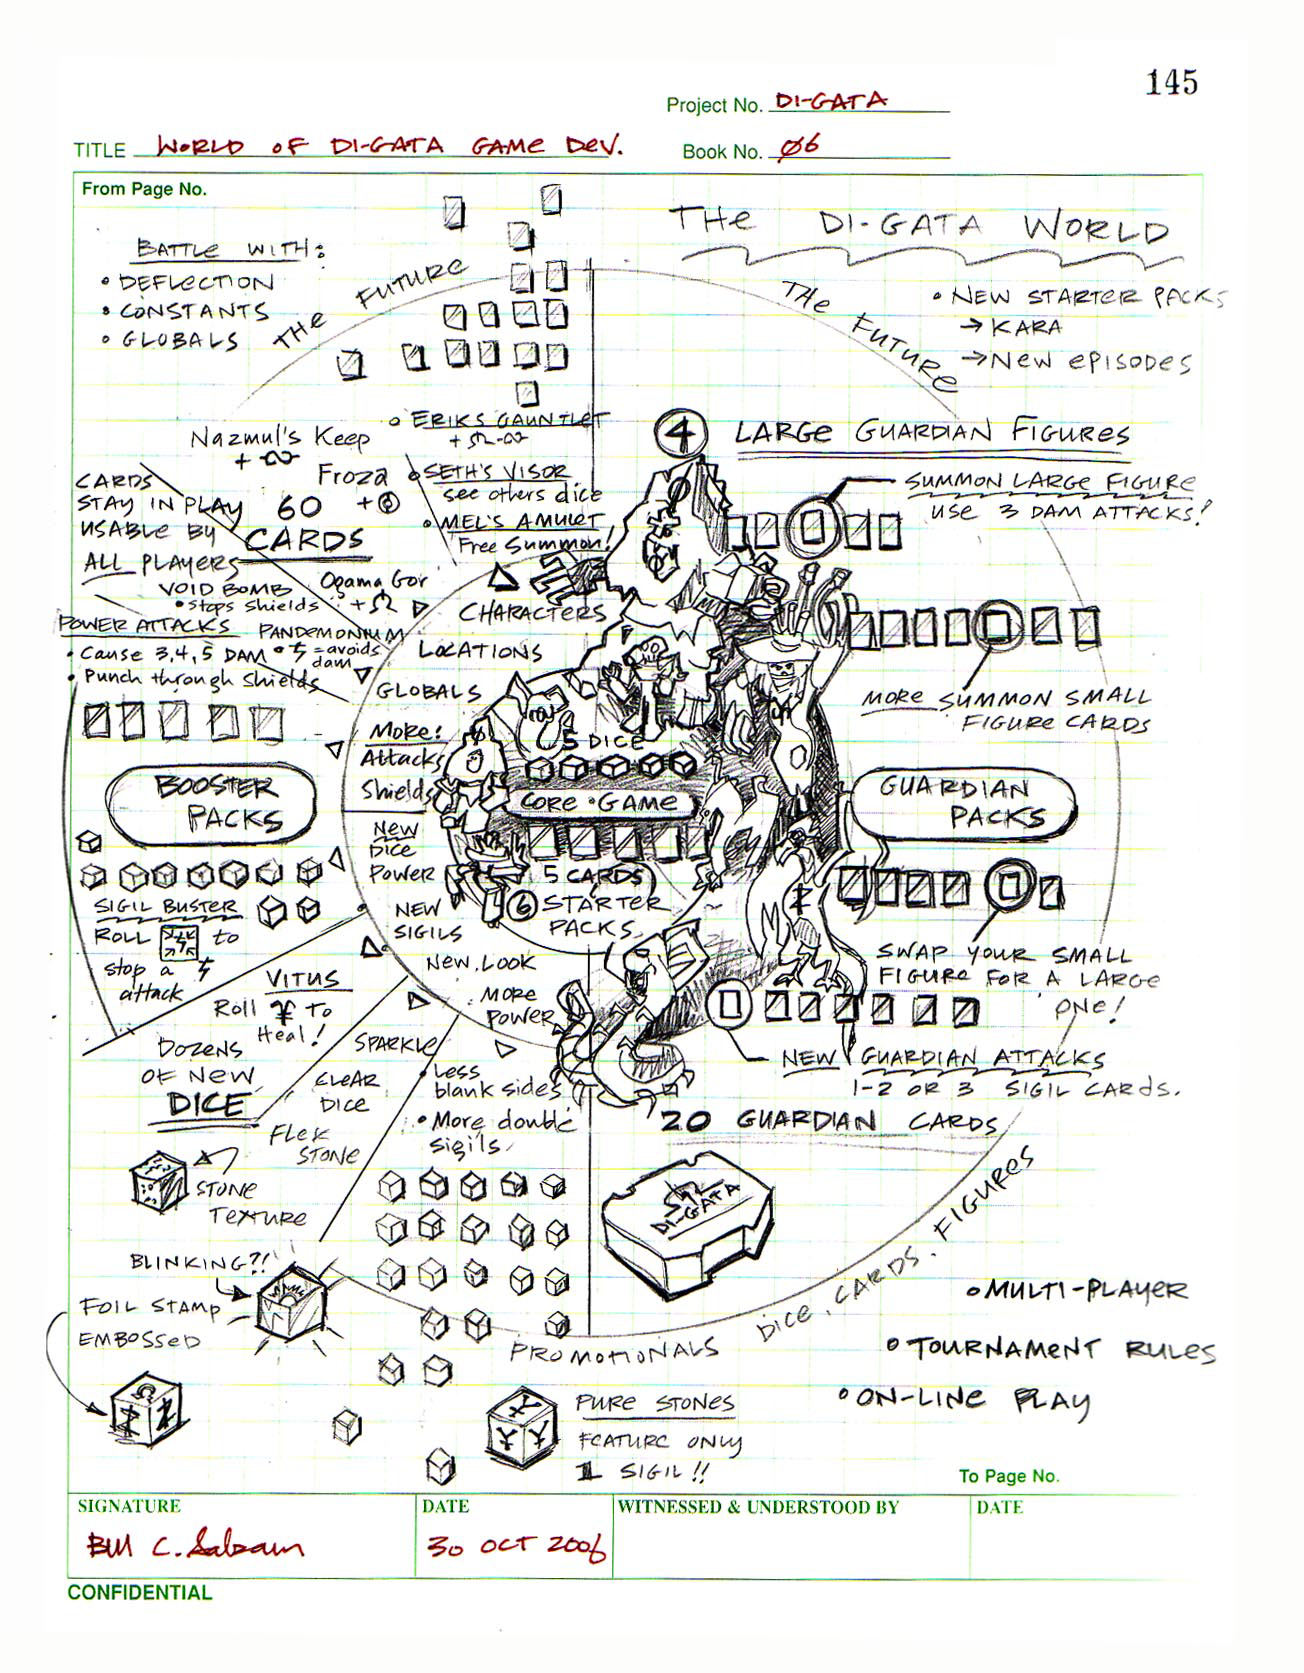 145
Project No. DI-GATA
TITLE WORLD OF DI-GATA GAME DEV.
Book No. Ø6
From Page No.
THE DI-GATA WORLD
BATTLE WITH:
• DEFLECTION
• CONSTANTS
• GLOBALS
THE FUTURE
THE FUTURE
• NEW STARTER PACKS
→ KARA
→ NEW EPISODES
④ LARGE GUARDIAN FIGURES
SUMMON LARGE FIGURE
USE 3 DAM ATTACKS!
MORE SUMMON SMALL
FIGURE CARDS
GUARDIAN
PACKS
SWAP YOUR SMALL
FIGURE FOR A LARGE
ONE!
NEW GUARDIAN ATTACKS
1-2 OR 3 SIGIL CARDS.
20 GUARDIAN CARDS
• ERIK'S GAUNTLET
• SETH'S VISOR
see others dice
• MEL'S AMULET
Free Summon!
Nazmul's Keep
Froza
60
CARDS
CARDS
STAY IN PLAY
USABLE BY
ALL PLAYERS
VOID BOMB
• Stops Shields
Ogama Gor
+ Ω
POWER ATTACKS
• Cause 3,4,5 DAM
• Punch through Shields
PANDEMONIUM
= avoids
dam
CHARACTERS
LOCATIONS
GLOBALS
MORE:
Attacks
Shields
NEW
DICE
POWER
NEW
SIGILS
NEW LOOK
MORE
POWER
5 DICE
CORE • GAME
5 CARDS
⑥ STARTER
PACKS
BOOSTER
PACKS
SIGIL BUSTER
ROLL to
stop a
attack
VITUS
Roll ¥ TO
Heal!
DOZENS
OF NEW
DICE
SPARKLE
CLEAR
DICE
FLEK
STONE
• Less
blank sides
• More double
sigils
STONE
TEXTURE
BLINKING?!
FOIL STAMP
EMBOSSED
DI-GATA
DICE, CARDS, FIGURES
PROMOTIONALS
PURE STONES
FEATURE ONLY
1 SIGIL!!
• MULTI-PLAYER
• TOURNAMENT RULES
• ON-LINE PLAY
To Page No.
SIGNATURE
DATE
WITNESSED & UNDERSTOOD BY
DATE
Bill C.
30 OCT 2006
CONFIDENTIAL